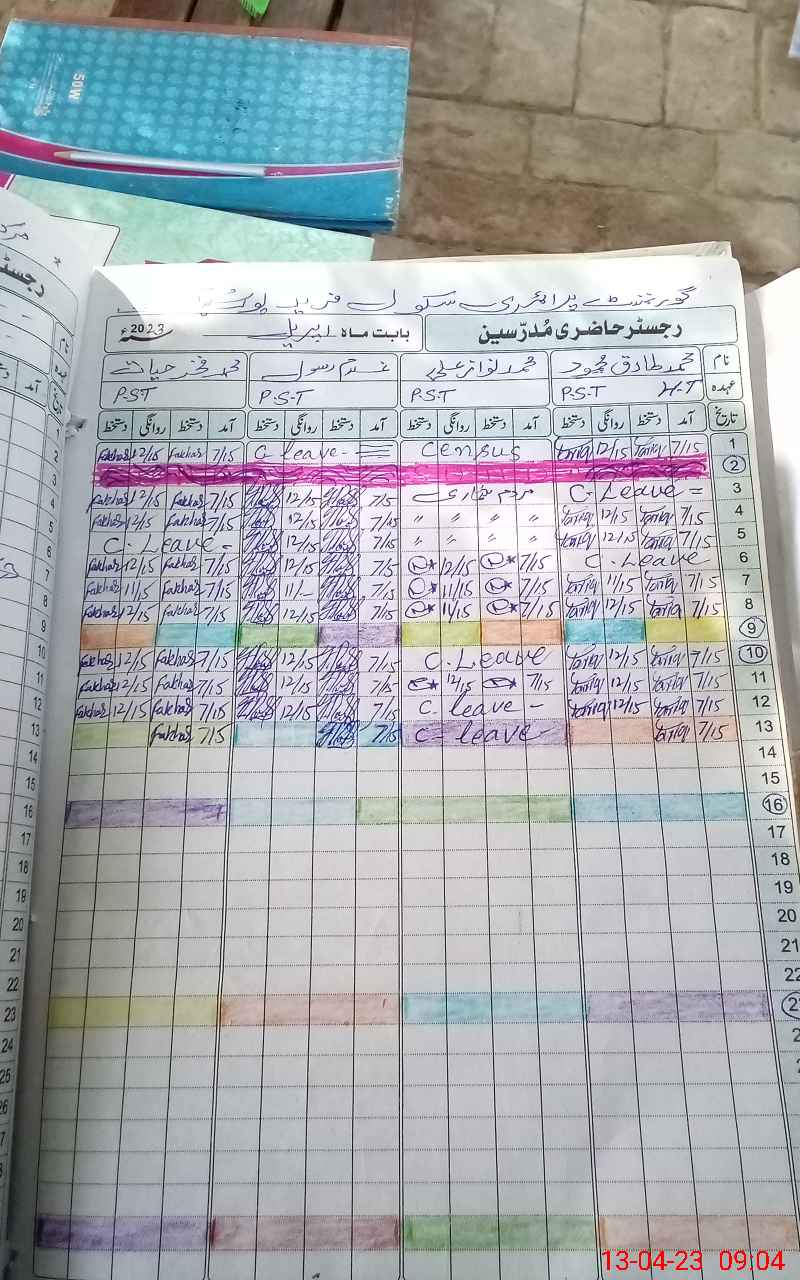 50W
گورنمنٹ پرائمری سکول فرید پور
رجسٹر حاضری مُدرّسین بابت ماہ اپریل 2023ء
نام محمد طارق محمود محمد نواز علی غلام رسول محمد فخر حیات
عہدہ P.S.T H.T P.S.T P.S.T P.S.T
تاریخ آمد دستخط روانگی دستخط آمد دستخط روانگی دستخط آمد دستخط روانگی دستخط آمد دستخط روانگی دستخط
Fakhar 12/15 Fakhar 7/15 C leave - Census Tariq 12/15 Tariq 7/15 1
2
Fakhar 12/15 Fakhar 7/15 12/15 7/15 مردم شماری C. Leave = 3
Fakhar 12/15 Fakhar 7/15 12/15 7/15 " " " " Tariq 12/15 Tariq 7/15 4
C. Leave - 12/15 7/15 " " " " Tariq 12/15 Tariq 7/15 5
Fakhar 12/15 Fakhar 7/15 12/15 7/15 12/15 7/15 C. Leave 6
Fakhar 11/15 Fakhar 7/15 11/- 7/15 11/15 7/15 Tariq 11/15 Tariq 7/15 7
Fakhar 12/15 Fakhar 7/15 12/15 7/15 11/15 7/15 Tariq 12/15 Tariq 7/15 8
9
Fakhar 12/15 Fakhar 7/15 12/15 7/15 C. Leave Tariq 12/15 Tariq 7/15 10
Fakhar 12/15 Fakhar 7/15 12/15 7/15 12/15 7/15 Tariq 12/15 Tariq 7/15 11
Fakhar 12/15 Fakhar 7/15 12/15 7/15 C. leave - Tariq 12/15 Tariq 7/15 12
Fakhar 7/15 7/15 C - leave - Tariq 7/15 13
14
15
16
17
18
19
20
21
22
13-04-23 09:04